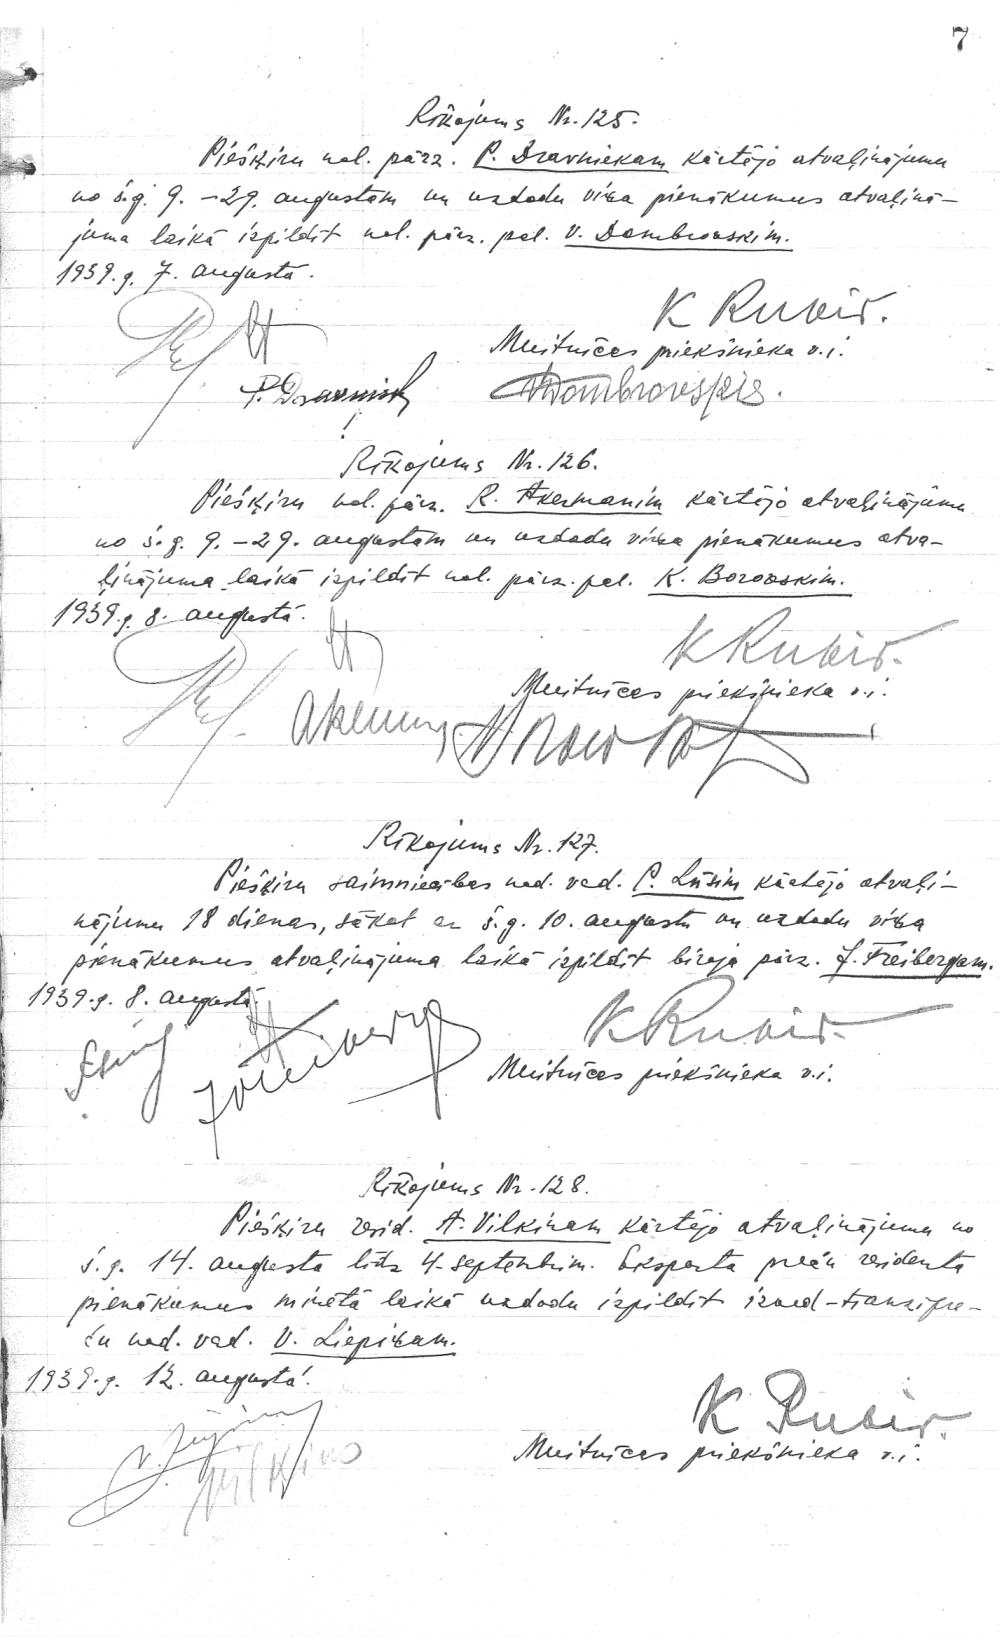 7
Rīkojums Nr. 125.
Piešķiru nol. pārz. P. Dzavniekam kārtējo atvaļinājumu
no š.g. 9. – 29. augustam un uzdodu viņa pienākumus atvaļinā-
juma laikā izpildīt nol. pārz. pal. V. Dombrovskim.
1939.g. 7. augustā.
K Rubis.
Muitnīcas priekšnieka v.i.
P. Dzavnieks
Dombrovskis.
Rīkojums Nr. 126.
Piešķiru nol. pārz. R. Akermanim kārtējo atvaļinājumu
no š.g. 9. – 29. augustam un uzdodu viņa pienākumus atva-
ļinājuma laikā izpildīt nol. pārz. pal. K. Borovskim.
1939.g. 8. augustā.
K Rubis.
Muitnīcas priekšnieka v.i.
Rīkojums Nr. 127.
Piešķiru saimniecības nod. vad. P. Lūsim kārtējo atvaļi-
nājumu 18 dienas, sākot ar š.g. 10. augustu un uzdodu viņa
pienākumus atvaļinājuma laikā izpildīt biroja pārz. J. Freibergam.
1939.g. 8. augustā
K Rubis.
Muitnīcas priekšnieka v.i.
J Freibergs
Rīkojums Nr. 128.
Piešķiru resid. A. Vilkinam kārtējo atvaļinājumu no
š.g. 14. augusta līdz 4. septembrim. Eksporta preču residenta
pienākumus minētā laikā uzdodu izpildīt izved-tranzitpre-
ču nod. vad. V. Liepiņam.
1939.g. 12. augustā.
K Rubis.
Muitnīcas priekšnieka v.i.